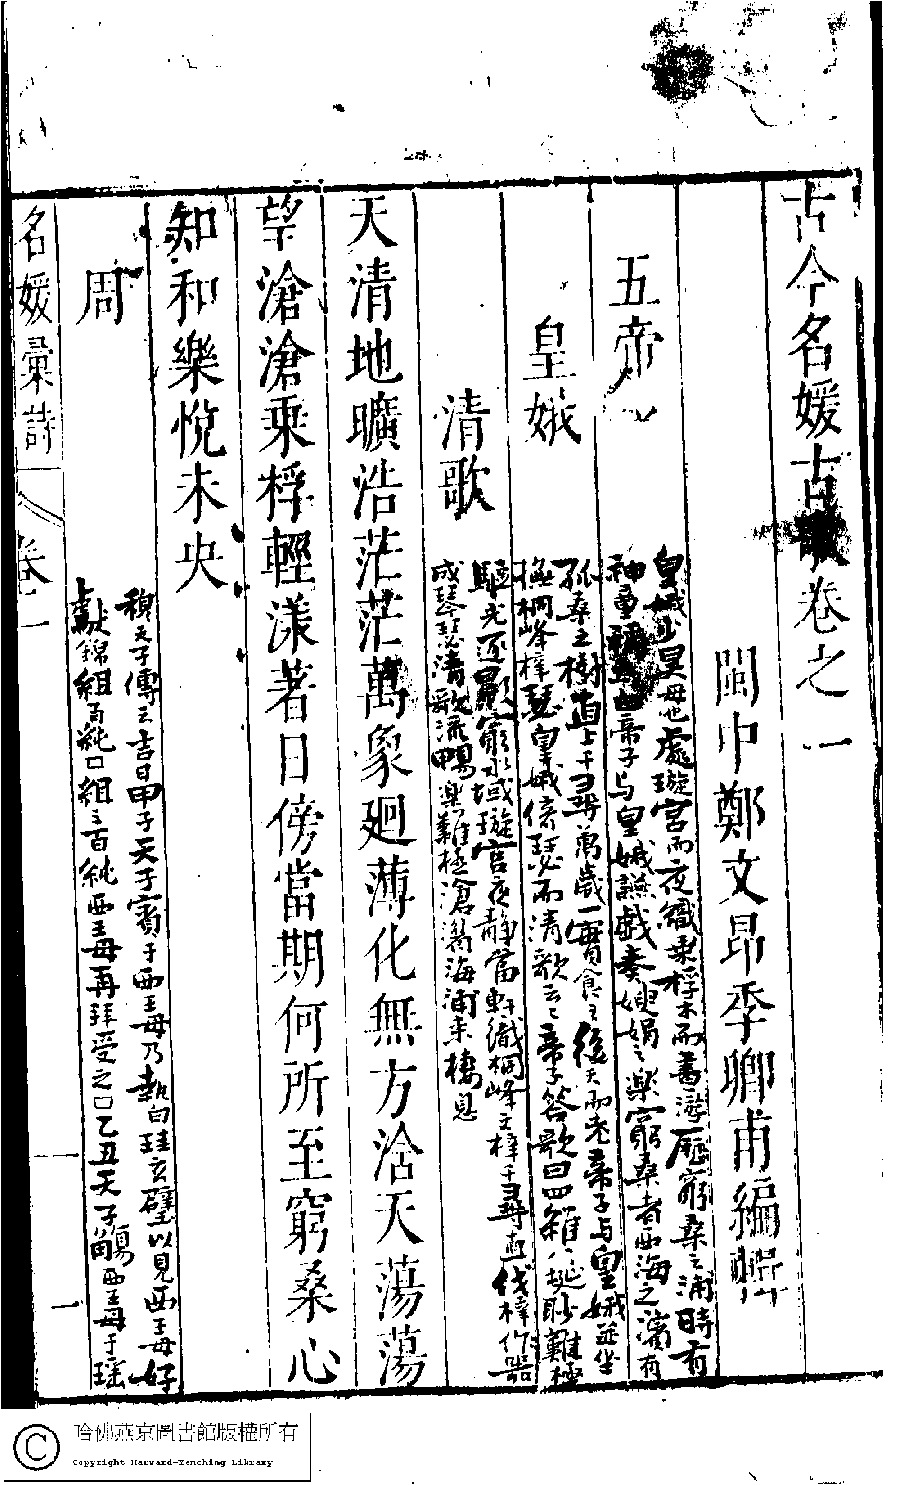 古今名媛古歌卷之一
閩中鄭文昂季卿甫編輯
五帝
皇娥少昊母也處璇宮而夜織乘桴木而晝游歷窮桑之浦時有
神童稱為白帝子与皇娥讌戲奏便娟之樂窮桑者西海之濱有
皇娥
孤桑之樹直上千尋萬歲一實食之後天而老帝子与皇娥並坐
撫桐峰梓瑟皇娥倚瑟而清歌云云帝子答歌曰四維八埏眇難極
清歌
驅光逐影窮水域璇宮夜靜當軒織桐峰文梓千尋直伐梓作器
成琴瑟清歌流暢樂難極滄湄海浦來棲息
天清地曠浩茫茫萬象廻薄化無方浛天蕩蕩
望滄滄乘桴輕漾著日傍當期何所至窮桑心
知和樂悅未央
周
穆天子傳云吉日甲子天子賓于西王母乃執白珪玄璧以見西王母好
獻錦組百純口組三百純西王母再拜受之口乙丑天子觴西王母于瑤
名媛彙詩
卷一
一
哈佛燕京圖書館版權所有
Copyright Harvard-Yenching Library